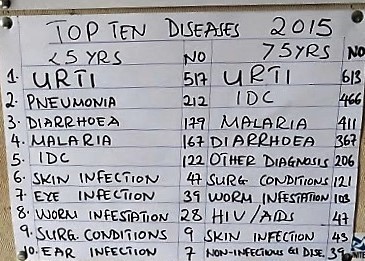 TOP TEN DISEASES 2015
<5YRS NO 75YRS NO
1. URTI 517 URTI 613
2. PNEUMONIA 212 IDC 466
3. DIARRHOEA 179 MALARIA 411
4. MALARIA 167 DIARRHOEA 367
5. IDC 122 OTHER DIAGNOSIS 206
6. SKIN INFECTION 47 SURG. CONDITIONS 121
7. EYE INFECTION 39 WORM INFESTATION 103
8. WORM INFESTATION 28 HIV/AIDS 47
9. SURG. CONDITIONS 9 SKIN INFECTION 43
10. EAR INFECTION 7 NON-INFECTIOUS GI DISE. 39